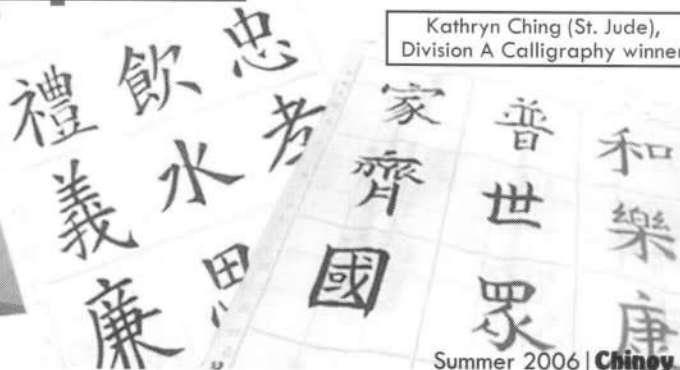 Kathryn Ching (St. Jude),
Division A Calligraphy winner
忠孝
飲水
禮義廉
和樂康
普世眾
家齊國
Summer 2006 | Chinoy